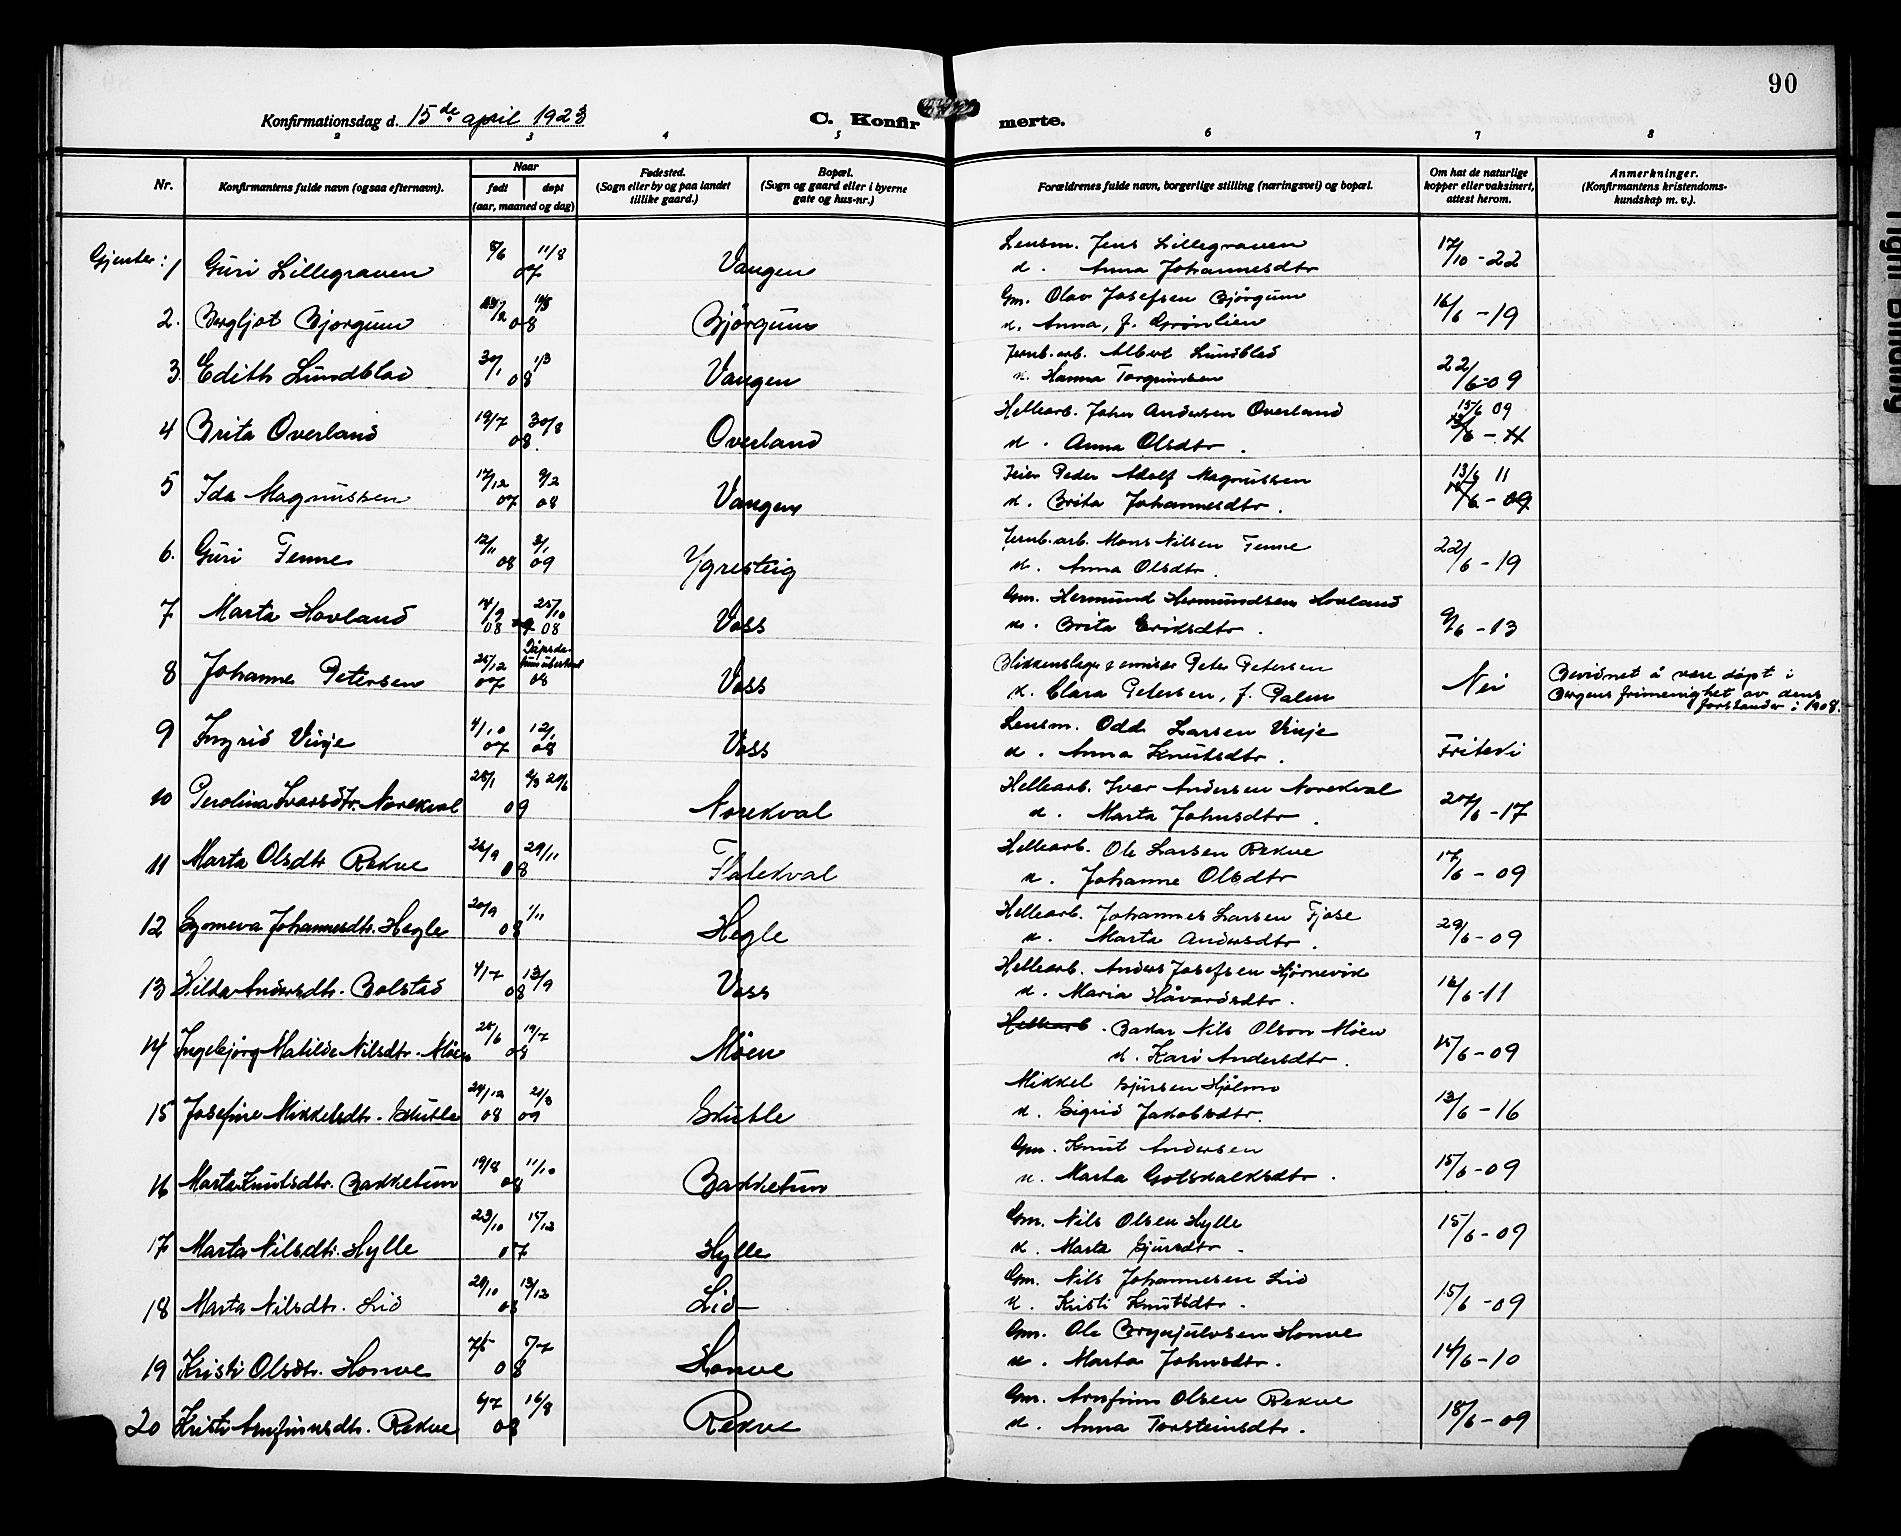 90
Konfirmationsdag d. 15de april 1923
C. Konfirmerte.
2 3 4 5 6 7 8
Nr.
Konfirmantens fulde navn (ogsaa efternavn).
Naar
født døpt
(aar, maaned og dag)
Fødested.
(Sogn eller by og paa landet
tillike gaard.)
Bopæl.
(Sogn og gaard eller i byerne
gate og hus-nr.)
Forældrenes fulde navn, borgerlige stilling (næringsvei) og bopæl.
Om hat de naturlige
kopper eller vaksinert,
attest herom.
Anmerkninger.
(Konfirmantens kristendoms-
kundskap m. v.).
Gjenter: 1 Guri Lillegraven 8/6 11/8 07 Vangen Lensm. Jens Lillegraven 17/10 - 22
u. Anna Johannesdtr
2. Bergljot Bjørgum 08 Bjørgum Gm. Olav Josefsen Bjørgum 16/6 - 19
u. Anna, f. Grønlien
3. Edith Lundblad 30/1 1/3 08 Vangen Jernb.arb. Albert Lundblad 22/6-09
u. Hanna Torgunsen
4 Brita Overland 19/7 30/8 08. Overland Hellearb. John Andersen Overland 15/6 09
u. Anna Olsdtr.
5 Ida Magnussen 17/12 07 9/2 08 Vangen Peder Adolf Magnussen 13/6 11
u. Brita Johannesdtr.
6. Guri Tenne 12/11 08 3/1 09 Ygresteig Jernb.arb. Mons Nilsen Tenne 22/6 - 19
u. Anna Olsdtr.
7 Marta Hovland 14/9 08 25/10 08 Voss Gm. Hermund Hermundsen Hovland 9/6 - 13
u. Brita Eriksdtr.
8 Johanne Petersen 25/12 07 08 Voss Blikkenslager Peter Petersen Nei Bevidnet å være døpt i
u. Clara Petersen, f. Palm Bergens frimenighet av dens
forstander i 1908.
9 Ingrid Vinje 4/10 07 12/1 08 Voss Lensm. Odd Larsen Vinje
u. Anna Knutsdtr.
10 Perolina Ivarsdtr. Norekval 25/1 09 Norekval Hellearb. Ivar Andersen Norekval 27/6 - 17
u. Marta Johnsdtr.
11 Marta Olsdtr Rekve 26/9 29/11 08 Flatekval Hellearb. Ole Larsen Rekve 17/6 - 09
u. Johanne Olsdtr
12 Synneva Johannesdtr. Hegle 20/9 1/11 08 Hegle Hellearb. Johannes Larsen Fjose 29/6 - 09
u. Marta Andersdtr.
13 Hilda Andersdtr. Bolstad 4/7 13/9 08 Voss Hellearb. Anders Josefsen Hjørnevik 16/6-11
u. Maria Håvardsdtr.
14 Ingebjørg Matilde Nilsdtr. Möen 25/6 19/7 08 Möen Hellearb. Baker Nils Olson Möen 15/6 - 09
u. Kari Andersdtr.
15 Josefine Mikkelsdtr. Skutle 24/12 08 21/3 09 Skutle Mikkel Gjursen Hjelmo 13/6 - 16
u. Sigrid Jakobsdtr.
16 Marta Knutsdtr. Bakketun 19/8 11/10 08 Bakketun Gm. Knut Andersen 15/6 - 09
u. Marta Gotskalksdtr.
17 Marta Nilsdtr. Hylle 23/10 15/12 07 Hylle Gm. Nils Olsen Hylle 15/6 - 09
u. Marta Gjursdtr.
18 Marta Nilsdtr. Lid 29/10 13/12 08 Lid Gm. Nils Johannesen Lid 15/6 - 09
u. Kristi Knutsdtr.
19 Kristi Olsdtr. Honve 7/5 5/7 08 Honve Gm. Ole Brynjulvsen Honve 14/6 - 10
u. Marta Johnsdtr.
20 Kristi Arnfinnsdtr. Rekve 6/7 16/8 08 Rekve Gm. Arnfinn Olsen Rekve 18/6 - 09
u. Anna Torsteinsdtr.